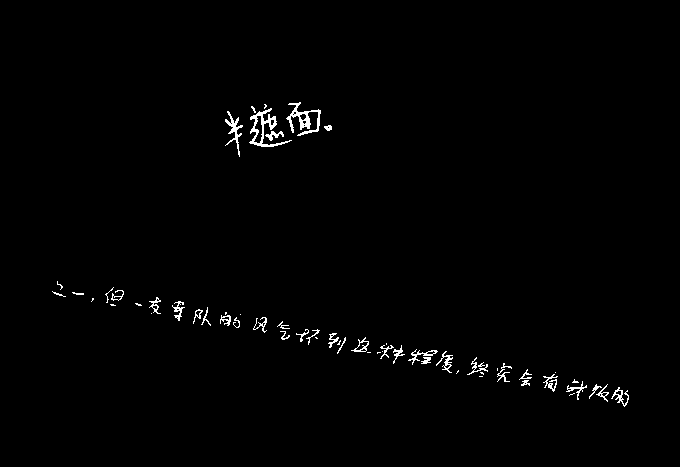 半遮面。
之一，但一支军队的风气坏到这种程度，终究会有战败的